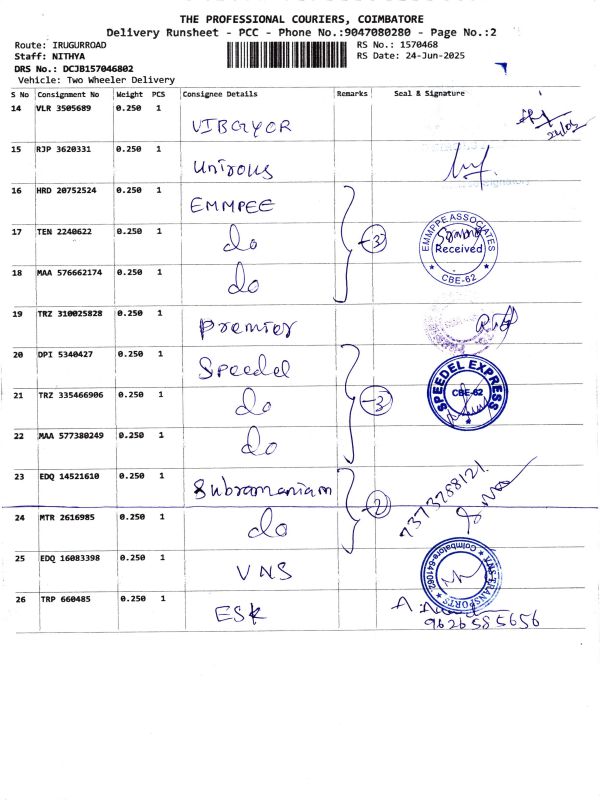 THE PROFESSIONAL COURIERS, COIMBATORE
Delivery Runsheet - PCC - Phone No.:9047080280 - Page No.:2
Route: IRUGURROAD
RS No.: 1570468
Staff: NITHYA
RS Date: 24-Jun-2025
DRS No.: DCJB157046802
Vehicle: Two Wheeler Delivery
S No Consignment No Weight PCS Consignee Details Remarks Seal & Signature
14 VLR 3505689 0.250 1 VIBGYOR
15 RJP 3620331 0.250 1 Unirous
16 HRD 20752524 0.250 1 EMMPEE
17 TEN 2240622 0.250 1 do -3
EMMPPE ASSOCIATES
Received
CBE-62
18 MAA 576662174 0.250 1 do
19 TRZ 310025828 0.250 1 Premier
20 DPI 5340427 0.250 1 Speedel
21 TRZ 335466906 0.250 1 do -3
SPEEDEL EXPRESS
CBE-62
22 MAA 577380249 0.250 1 do
23 EDQ 14521610 0.250 1 Subramaniam -2
7373788121
24 MTR 2616985 0.250 1 do
25 EDQ 16083398 0.250 1 VNS
TRANSPORTS
26 TRP 660485 0.250 1 ESK
9626585656